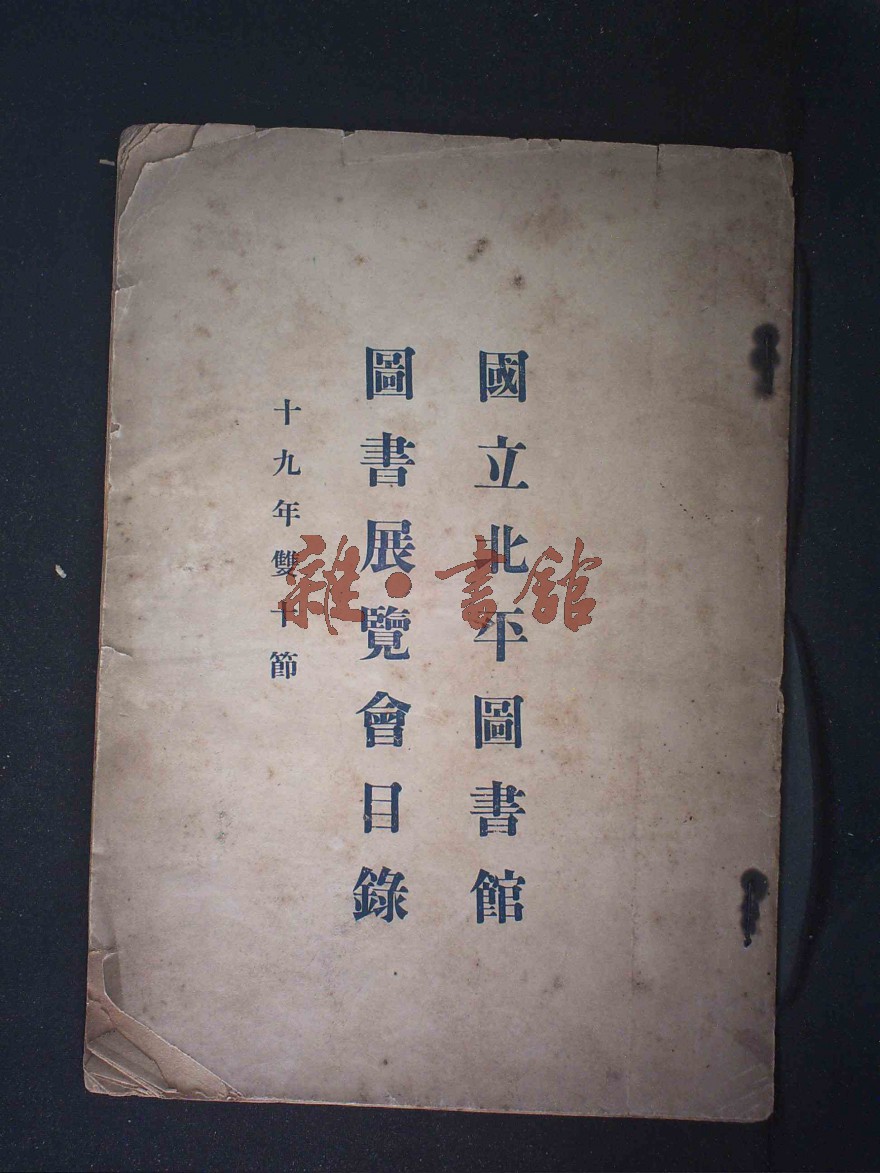 國立北平圖書館
圖書展覽會目錄
十九年雙十節
雜·書館